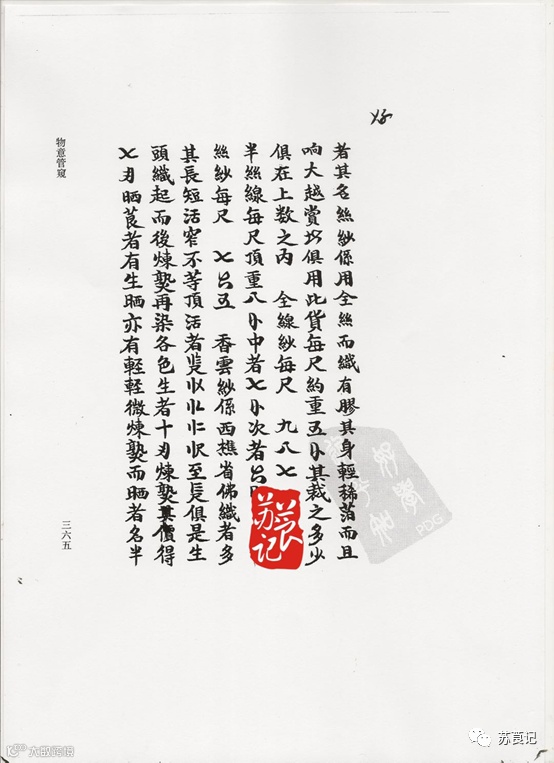 者其名絲紗係用全絲而織有膠其身輕稀薄而且
响大越賞以俱用此貨每尺約重五其裁之多少
俱在上数之内 全線紗每尺 九八七
半絲線每尺頂重八中者次者
絲紗每尺 五 香雲紗係西樵省佛織者多
其長短活窄不等頂活者至長俱是生
頭織起而後煉熟再染各色生者十刃煉熟其價得
刃晒莨者有生晒亦有輕輕微煉熟而晒者名半
物意管窺
三六五
苏莨记
PDG
苏莨记
大数跨境